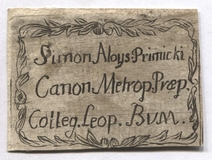 Simon Aloys: Primicki
Canon Metrop. Præp.
Colleg. Leop. B.V.M.